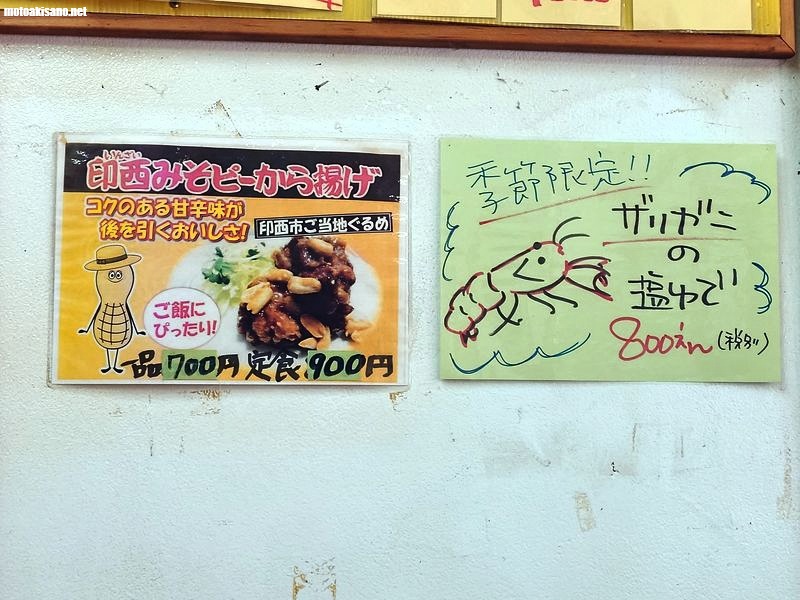 motoakisano.net
いんざい
印西みそピーから揚げ
コクのある甘辛味が
後を引くおいしさ!
印西市ご当地ぐるめ
ご飯に
ぴったり!
一品700円 定食900円
季節限定!!
ザリガニ
の
塩ゆで
800えん(税別)